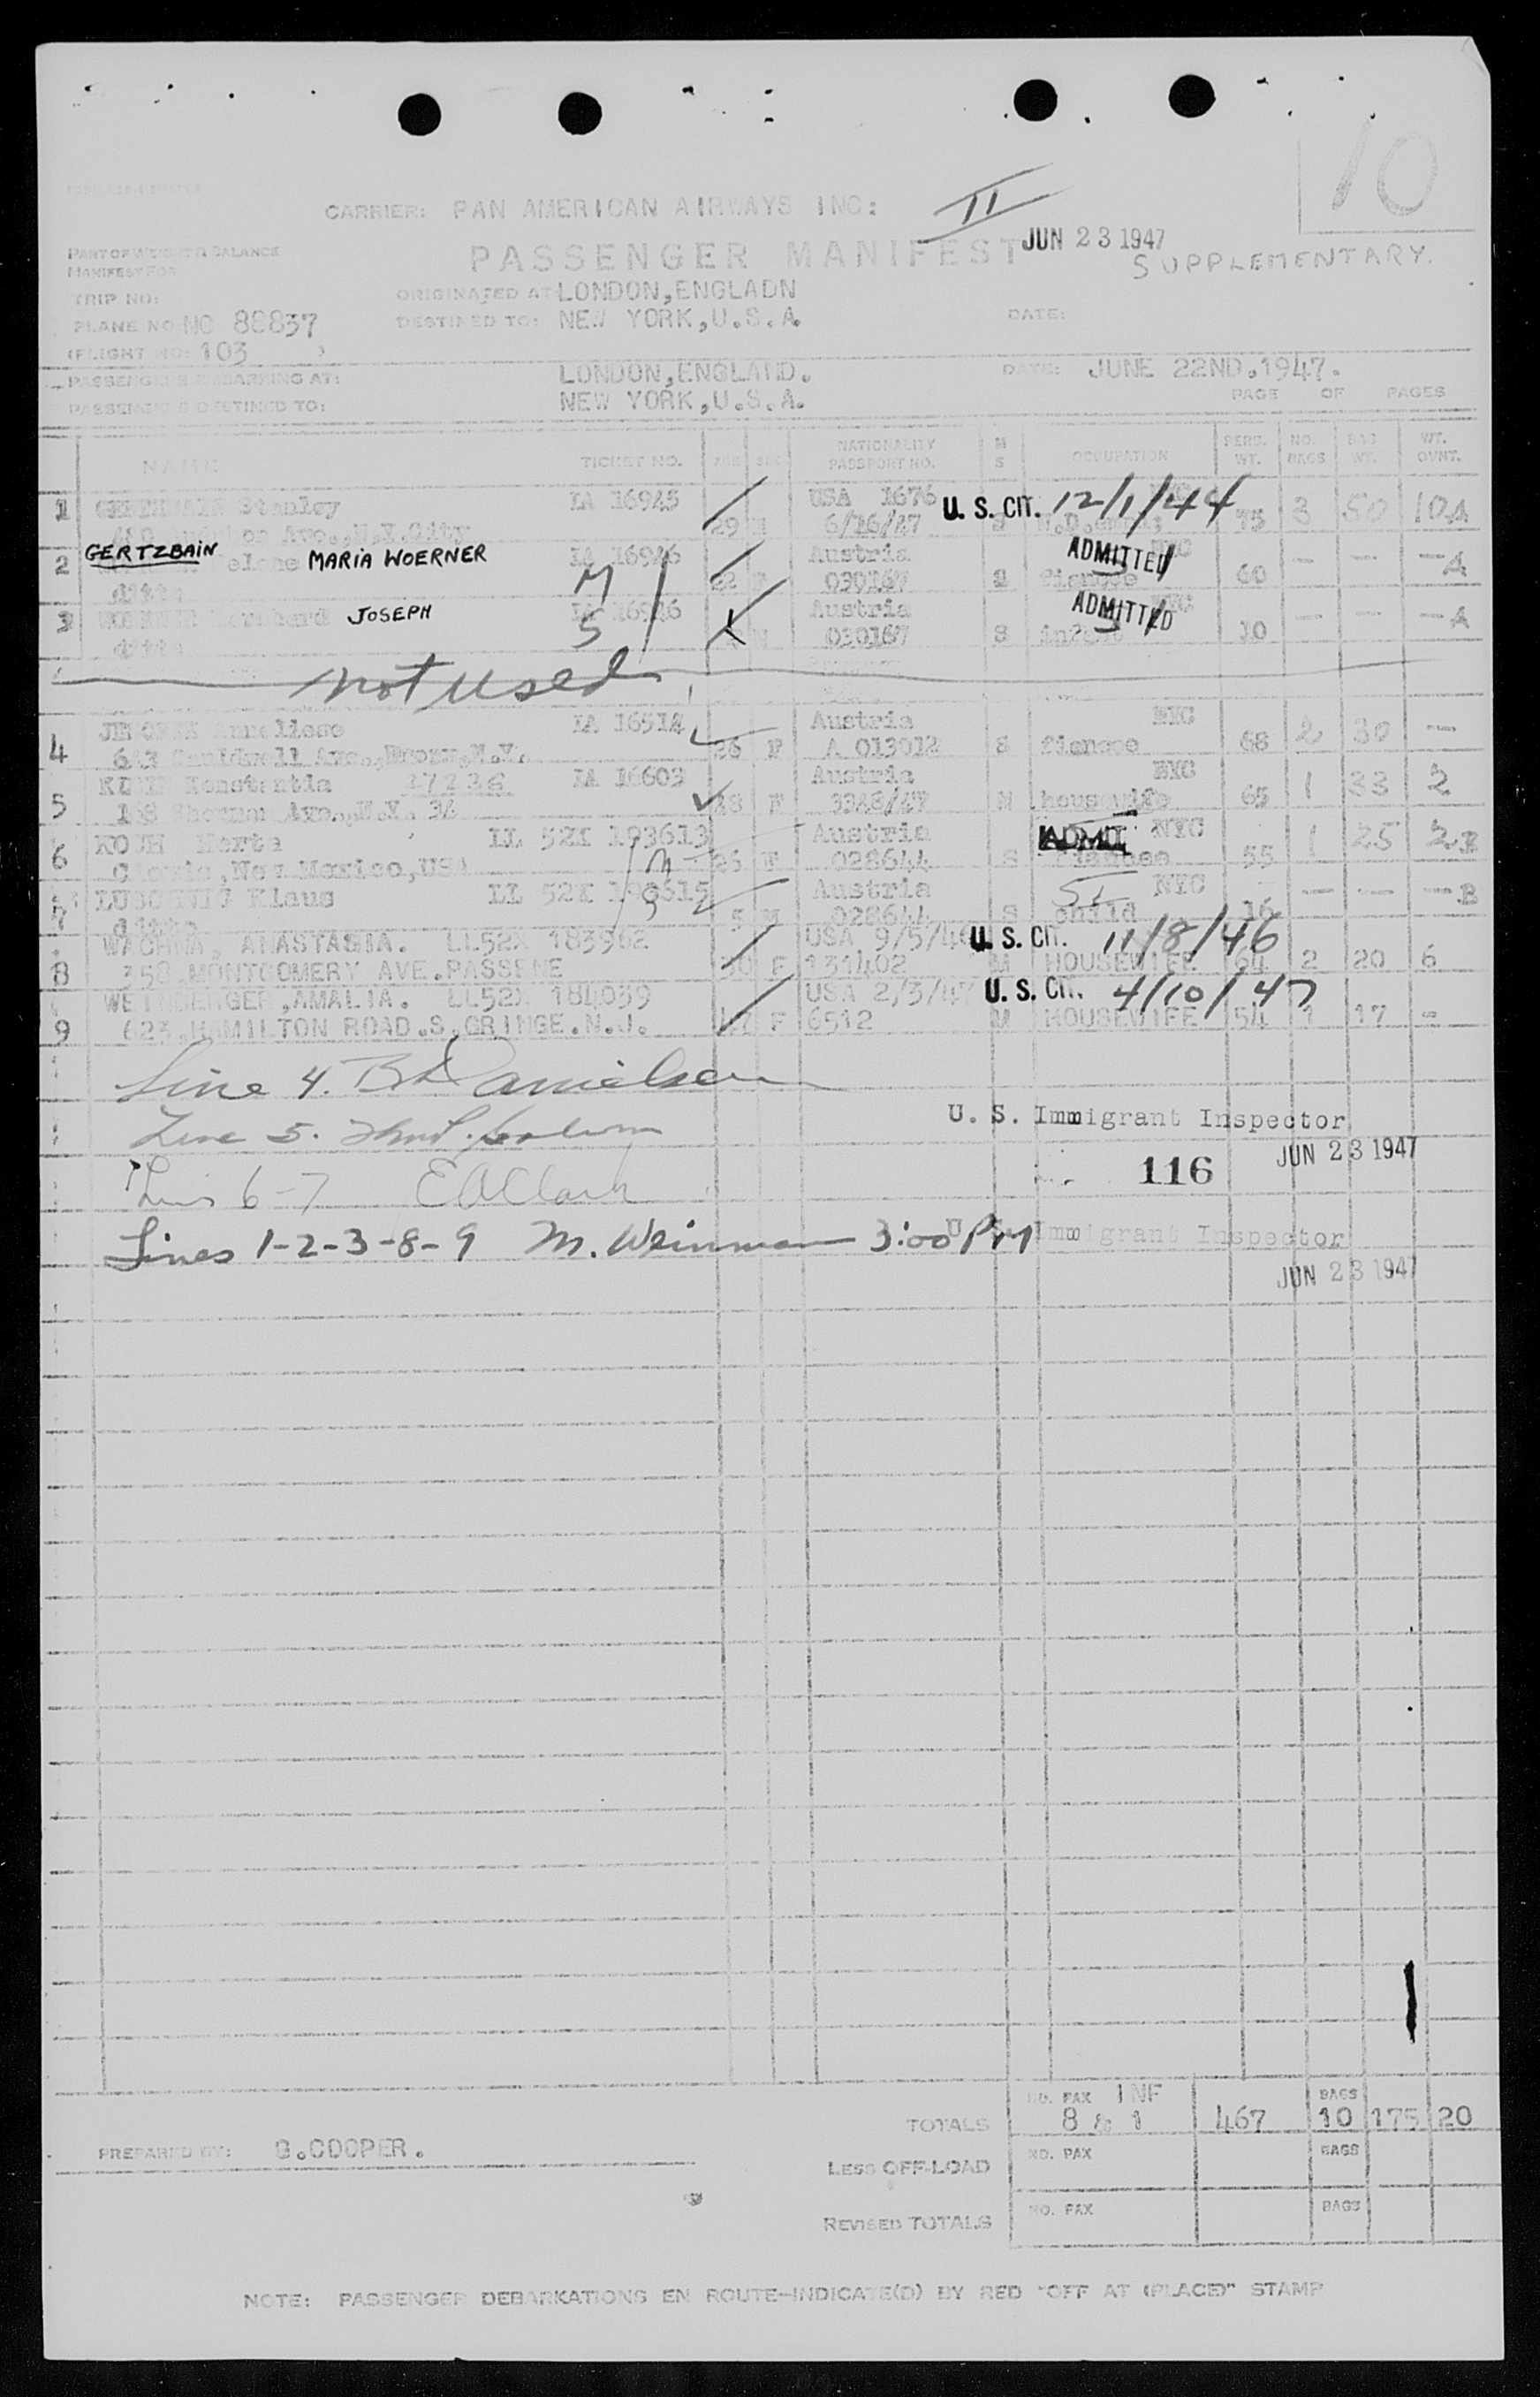 10
CARRIER: PAN AMERICAN AIRWAYS INC: II
PASSENGER MANIFEST JUN 23 1947
SUPPLEMENTARY.
PART OF WEIGHT & BALANCE
MANIFEST FOR
TRIP NO: ORIGINATED AT LONDON,ENGLADN
PLANE NO NC 88837 DESTINED TO: NEW YORK,U.S.A. DATE:
(FLIGHT NO: 103 )
PASSENGERS EMBARKING AT: LONDON,ENGLAND. DATE: JUNE 22ND,1947.
PASSENGERS DESTINED TO: NEW YORK,U.S.A. PAGE OF PAGES
NAME TICKET NO. AGE SEX NATIONALITY PASSPORT NO. M S OCCUPATION PERS. WT. NO. BAGS BAG WT. WT. OVNT.
1 Stanley IA 16945 USA 1676 U. S. CIT. 12/1/44 3 50 10A
Ave.,N.Y.City 29 6/16/47
2 GERTZBAIN MARIA WOERNER IA 16946 M Austria ADMITTED — — —A
ditto 22 030167 S fiancee 60
3 JOSEPH IA 16946 S Austria ADMITTED — — —A
ditto 030167 S infant 10
not used
4 Anneliese IA 16514 Austria NYC 2 30 —
Ave.,Bronx,N.Y. 26 F A 013012 S fiancee 68
5 Konstantia IA 16603 Austria NYC 1 33 2
Sherman Ave.,N.Y. 34 F 3348/47 M housewife 65
6 KOCH Herta LL 52X 193613 M Austria ADMIT NYC 1 25 2B
,New Mexico,USA 26 F 028644 S fiancee 55
7 Klaus LL 52X 193615 S Austria NYC — — —B
ditto 5 M 028644 S child 16
8 WACHNA, ANASTASIA. LL52X 183962 USA 9/5/46 U. S. CIT. 11/8/46
358 MONTGOMERY AVE.PASSENE 30 F 131402 M HOUSEWIFE 64 2 20 6
9 WEINBERGER,AMALIA. LL52X 184039 USA 2/3/47 U. S. CIT. 4/10/47
623,HAMILTON ROAD.S,ORINGE.N.J. 47 F 6512 M HOUSEWIFE 54 1 17 -
Line 4. B Danielsen
Line 5.
U. S. Immigrant Inspector
JUN 23 1947
116
Lines 6-7 E A Clark
Lines 1-2-3-8-9 M. Weinman 3:00 PM U. S. Immigrant Inspector
JUN 23 1947
TOTALS NO. PAX 8 & 1 INF 467 BAGS 10 175 20
PREPARED BY: G.COOPER.
LESS OFF-LOAD NO. PAX BAGS
REVISED TOTALS NO. PAX BAGS
NOTE: PASSENGER DEBARKATIONS EN ROUTE—INDICATE(D) BY RED "OFF AT (PLACE)" STAMP